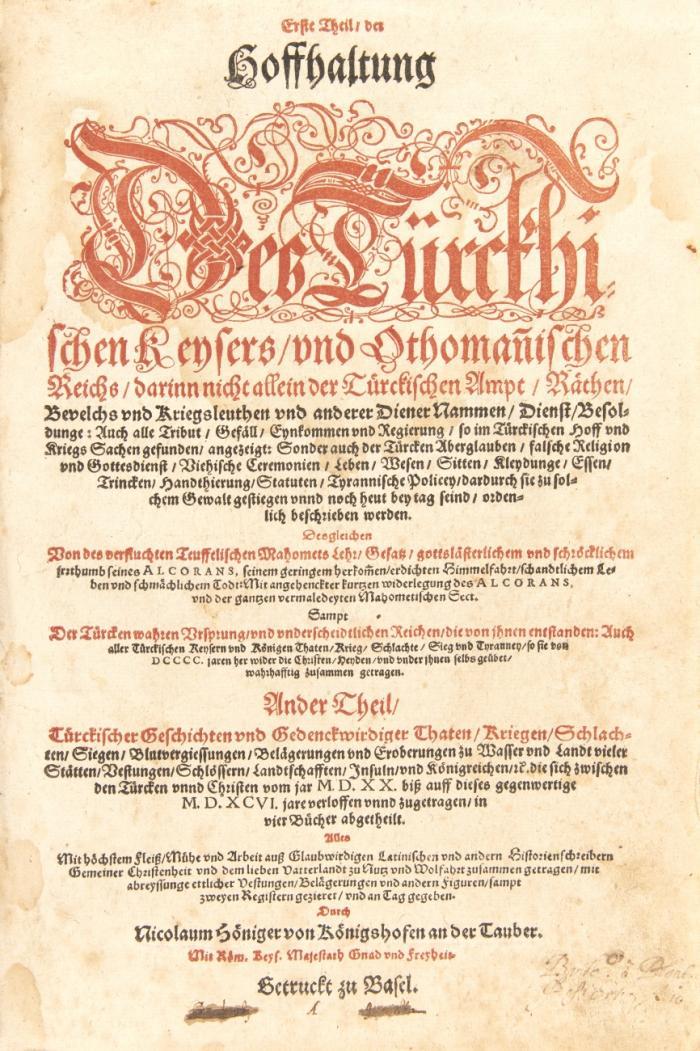 Erste Theil / der
Hoffhaltung
Des Türckhi⸗
schen Keysers / vnd Othomañischen
Reichs / darinn nicht allein der Türckischen Ampt / Räthen /
Bevelchs vnd Kriegsleuthen vnd anderer Diener Nammen / Dienst / Besol⸗
dunge : Auch alle Tribut / Gefäll / Eynkommen vnd Regierung / so im Türckischen Hoff vnd
Kriegs Sachen gefunden / angezeigt: Sonder auch der Türcken Aberglauben / falsche Religion
vnd Gottesdienst / Viehische Ceremonien / Leben / Wesen / Sitten / Kleydunge / Essen /
Trincken / Handthierung / Statuten / Tyrannische Policey / dardurch sie zu sol⸗
chem Gewalt gestiegen vnnd noch heut bey tag seind / orden⸗
lich beschrieben werden.
Desgleichen
Von des verfluchten Teuffelischen Mahomets Lehr / Gesatz / gottslästerlichem vnd schröcklichem
jrrthumb seines ALCORANS, seinem geringem herkom̃en / erdichten Himmelfahrt / schandtlichem Le⸗
ben vnd schmächlichem Todt: Mit angehenckter kurtzen widerlegung des ALCORANS,
vnd der gantzen vermaledeyten Mahometischen Sect.
Sampt
Der Türcken wahren Vrsprung / vnd vnderscheidtlichen Reichen / die von jhnen entstanden: Auch
aller Türckischen Keysern vnd Königen Thaten / Krieg / Schlachte / Sieg vnd Tyranney / so sie von
DCCCC. jaren her wider die Christen / Heyden / vnd vnder jhnen selbs geübet /
wahrhafftig zusammen getragen.
Ander Theil /
Türckischer Geschichten vnd Gedenckwirdiger Thaten / Kriegen / Schlach⸗
ten / Siegen / Blutvergiessungen / Belägerungen vnd Eroberungen zu Wasser vnd Landt vieler
Stätten / Vestungen / Schlössern / Landtschafften / Insuln / vnd Königreichen / ꝛc. die sich zwischen
den Türcken vnnd Christen vom jar M. D. XX. biß auff dieses gegenwertige
M. D. XCVI. jare verloffen vnnd zugetragen / in
vier Bücher abgetheilt.
Alles
Mit höchstem Fleiß / Mühe vnd Arbeit auß Glaubwirdigen Latinischen vnd andern Historienschreibern
Gemeiner Christenheit vnd dem lieben Vatterlandt zu Nutz vnd Wolfahrt zusammen getragen / mit
abreyssunge ettlicher Vestungen / Belägerungen vnd andern Figuren / sampt
zweyen Registern gezieret / vnd an Tag gegeben.
Durch
Nicolaum Höniger von Königshofen an der Tauber.
Mit Röm. Keys. Majestath Gnad vnd Freyheit.
Getruckt zu Basel.